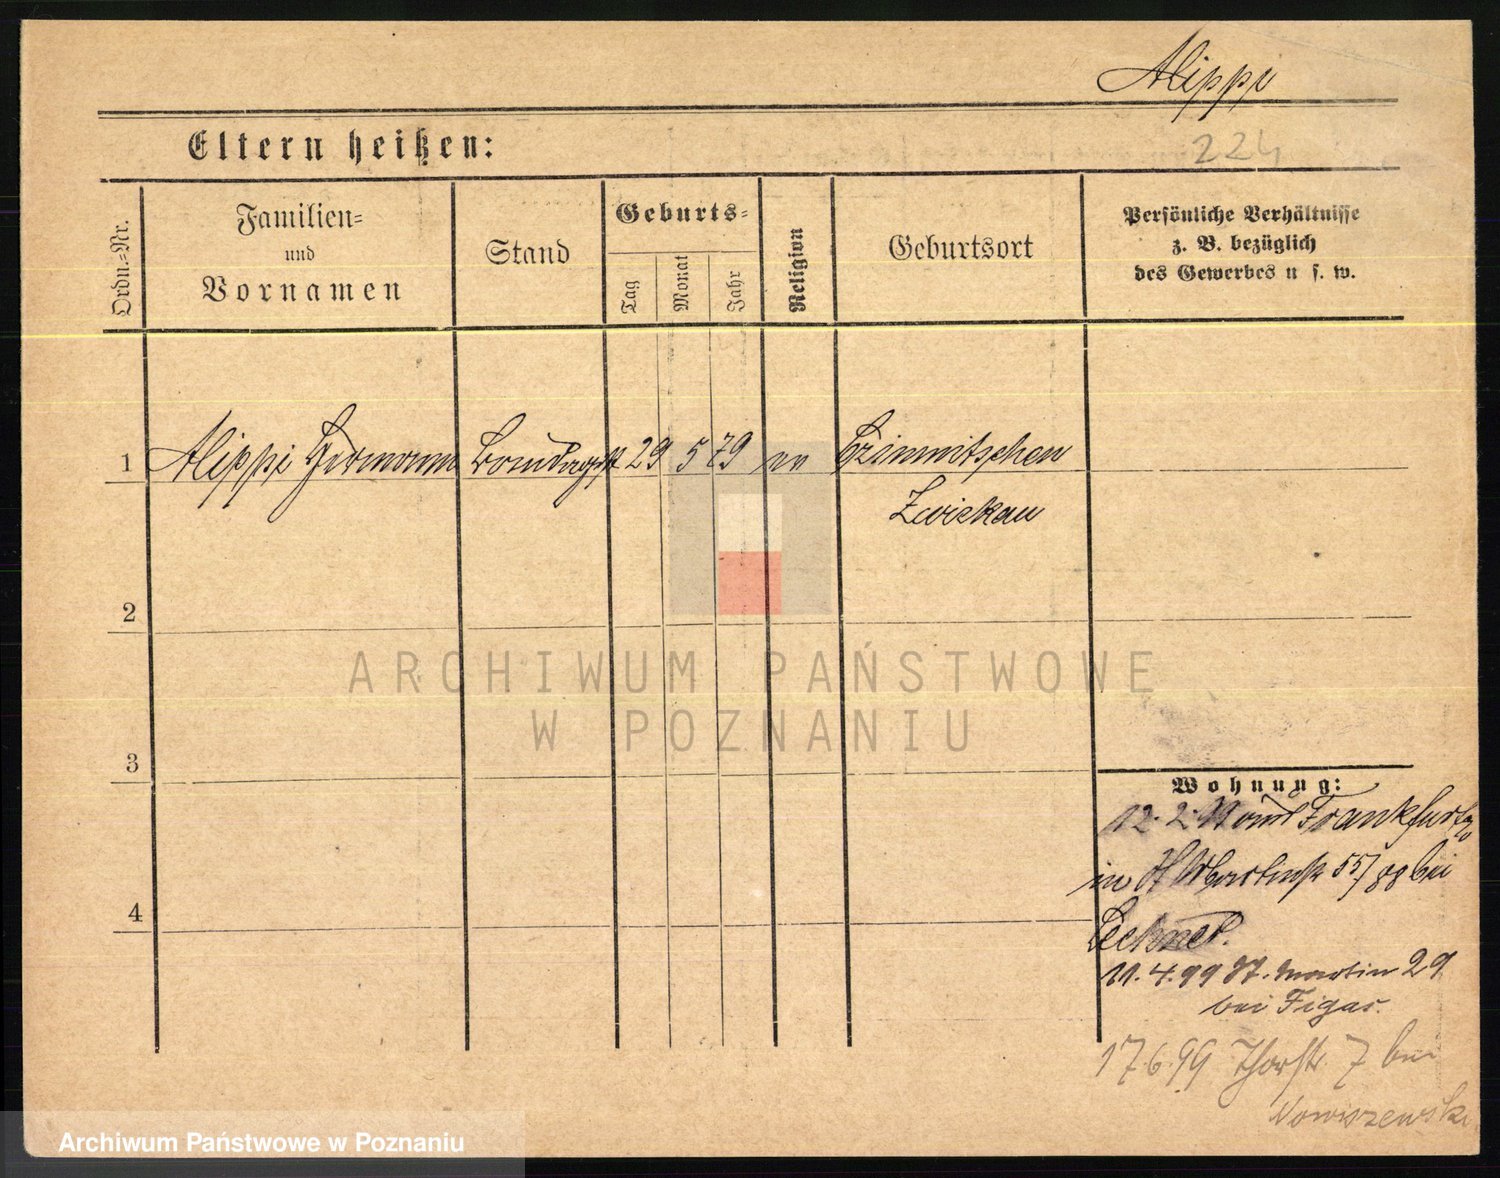 Alippi
224
Eltern heißen:
Ordn.=Nr.
Familien=
und
Vornamen
Stand
Geburts=
Tag
Monat
Jahr
Religion
Geburtsort
Persönliche Verhältnisse
z. B. bezüglich
des Gewerbes u s. w.
1 Alippi Hermann 29 5 79 ev Crimmitschau
Zwickau
2
3
4
Wohnung:
12. 2. Frankfurt
in St Martinstr 55/ bei
Lechner.
11. 4. 99 St. Martin 29
bei Figas.
17.6.99 Thorstr. 7 bei
Nowiszewski
ARCHIWUM PAŃSTWOWE
W POZNANIU
Archiwum Państwowe w Poznaniu